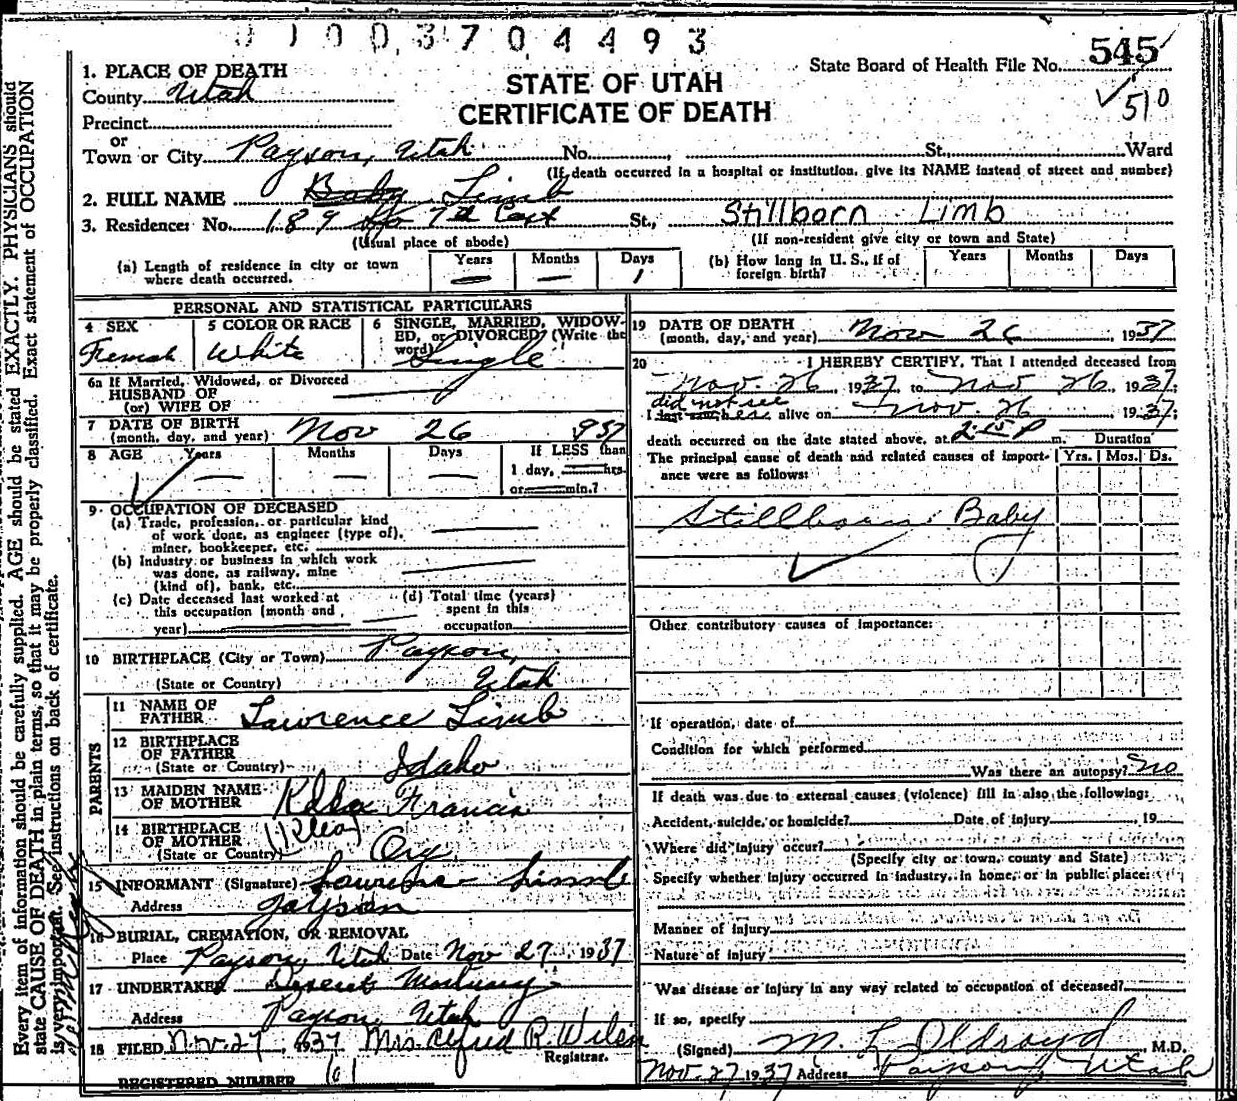 0 1 0 0 3 7 0 4 4 9 3
State Board of Health File No. 545
510
STATE OF UTAH
CERTIFICATE OF DEATH
1. PLACE OF DEATH
County Utah
Precinct
or
Town or City Payson, Utah No. , St., Ward
(If death occurred in a hospital or institution, give its NAME instead of street and number)
2. FULL NAME Baby Limb
Stillborn Limb
3. Residence: No. 189 So 7th East St.,
(Usual place of abode) (If non-resident give city or town and State)
(a) Length of residence in city or town where death occurred. Years — Months — Days 1
(b) How long in U. S., if of foreign birth? Years Months Days
PERSONAL AND STATISTICAL PARTICULARS
4 SEX Female
5 COLOR OR RACE White
6 SINGLE, MARRIED, WIDOWED, or DIVORCED? (Write the word) Single
6a If Married, Widowed, or Divorced
HUSBAND OF
(or) WIFE OF
7 DATE OF BIRTH
(month, day, and year) Nov 26 937
8 AGE Years — Months — Days — If LESS than
1 day, hrs.
or min.?
9 OCCUPATION OF DECEASED
(a) Trade, profession, or particular kind
of work done, as engineer (type of),
miner, bookkeeper, etc.
(b) Industry or business in which work
was done, as railway, mine
(kind of), bank, etc.
(c) Date deceased last worked at
this occupation (month and
year)
(d) Total time (years)
spent in this
occupation
10 BIRTHPLACE (City or Town) Payson,
(State or Country) Utah
PARENTS
11 NAME OF
FATHER Lawrence Limb
12 BIRTHPLACE
OF FATHER
(State or Country) Idaho
13 MAIDEN NAME
OF MOTHER Francis
14 BIRTHPLACE
OF MOTHER
(State or Country) Ore
15 INFORMANT (Signature) Lawrence Limb
Address Payson
16 BURIAL, CREMATION, OR REMOVAL
Place Payson, Utah Date Nov 27, 1937
17 UNDERTAKER Deseret Mortuary
Address Payson, Utah
18 FILED Nov. 27, 1937 Mrs. Alfred R. Wilson
Registrar.
REGISTERED NUMBER 101
19 DATE OF DEATH
(month, day, and year) Nov 26 1937
20 I HEREBY CERTIFY, That I attended deceased from
Nov. 26 1937 to Nov 26, 1937;
did not see
I last saw h alive on Nov. 26 1937;
death occurred on the date stated above, at 2:15 P m. Duration
The principal cause of death and related causes of importance were as follows: Yrs. Mos. Ds.
Stillborn Baby
Other contributory causes of importance:
If operation, date of
Condition for which performed
Was there an autopsy? no
If death was due to external causes (violence) fill in also the following:
Accident, suicide, or homicide? Date of injury , 19
Where did injury occur?
(Specify city or town, county and State)
Specify whether injury occurred in industry, in home, or in public place:
Manner of injury
Nature of injury
Was disease or injury in any way related to occupation of deceased?
If so, specify
(Signed) M. L. Oldroyd, M.D.
Nov. 27, 1937 Address Payson, Utah
Every item of information should be carefully supplied. AGE should be stated EXACTLY. PHYSICIANS should
state CAUSE OF DEATH in plain terms, so that it may be properly classified. Exact statement of OCCUPATION
is very important. See instructions on back of certificate.